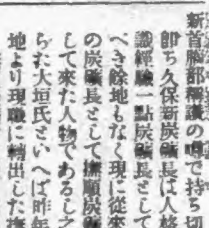 新首腦部釋議の噂で持ち切
卽ち久保新炭礦長は人格
識經驗一點炭礦長として
べき餘地もなく現に從來
の炭礦長として撫順炭礦
して來た人物であるし之
らた大垣氏といへば昨年
地より現職に轉出した撫